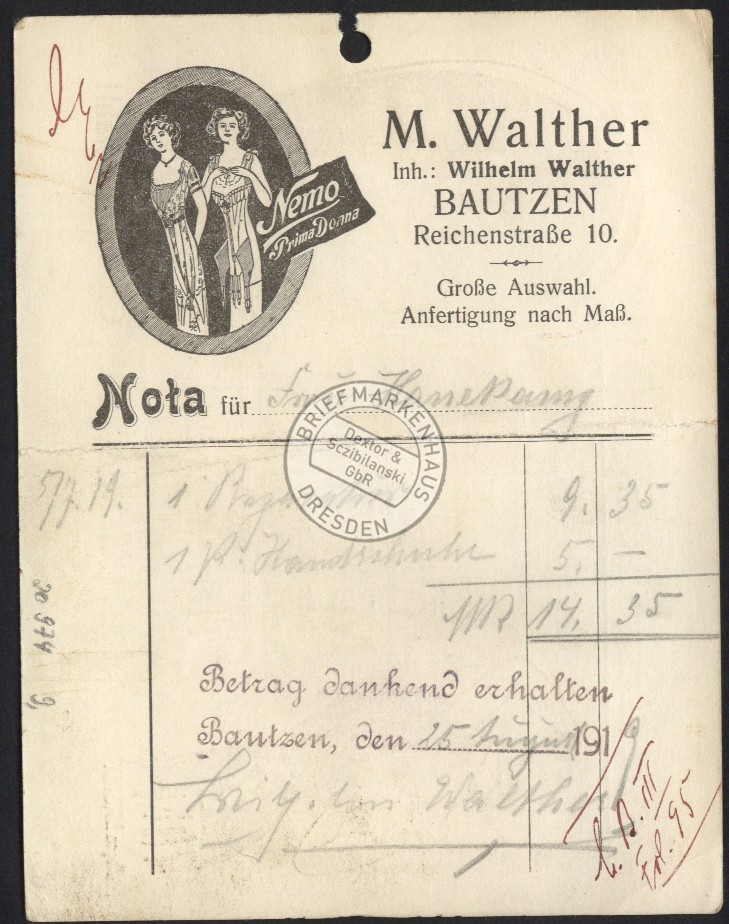 Nemo
Prima Donna
M. Walther
Inh.: Wilhelm Walther
BAUTZEN
Reichenstraße 10.
Große Auswahl.
Anfertigung nach Maß.
Nota für Frau
BRIEFMARKENHAUS
Dextor &
Sczibilanski
GbR
DRESDEN
5/7. 19. 1 9. 35
1 P. Handschuhe 5. –
MK 14. 35
Betrag dankend erhalten
Bautzen, den 25 August 1919
Walther
Fol. 95